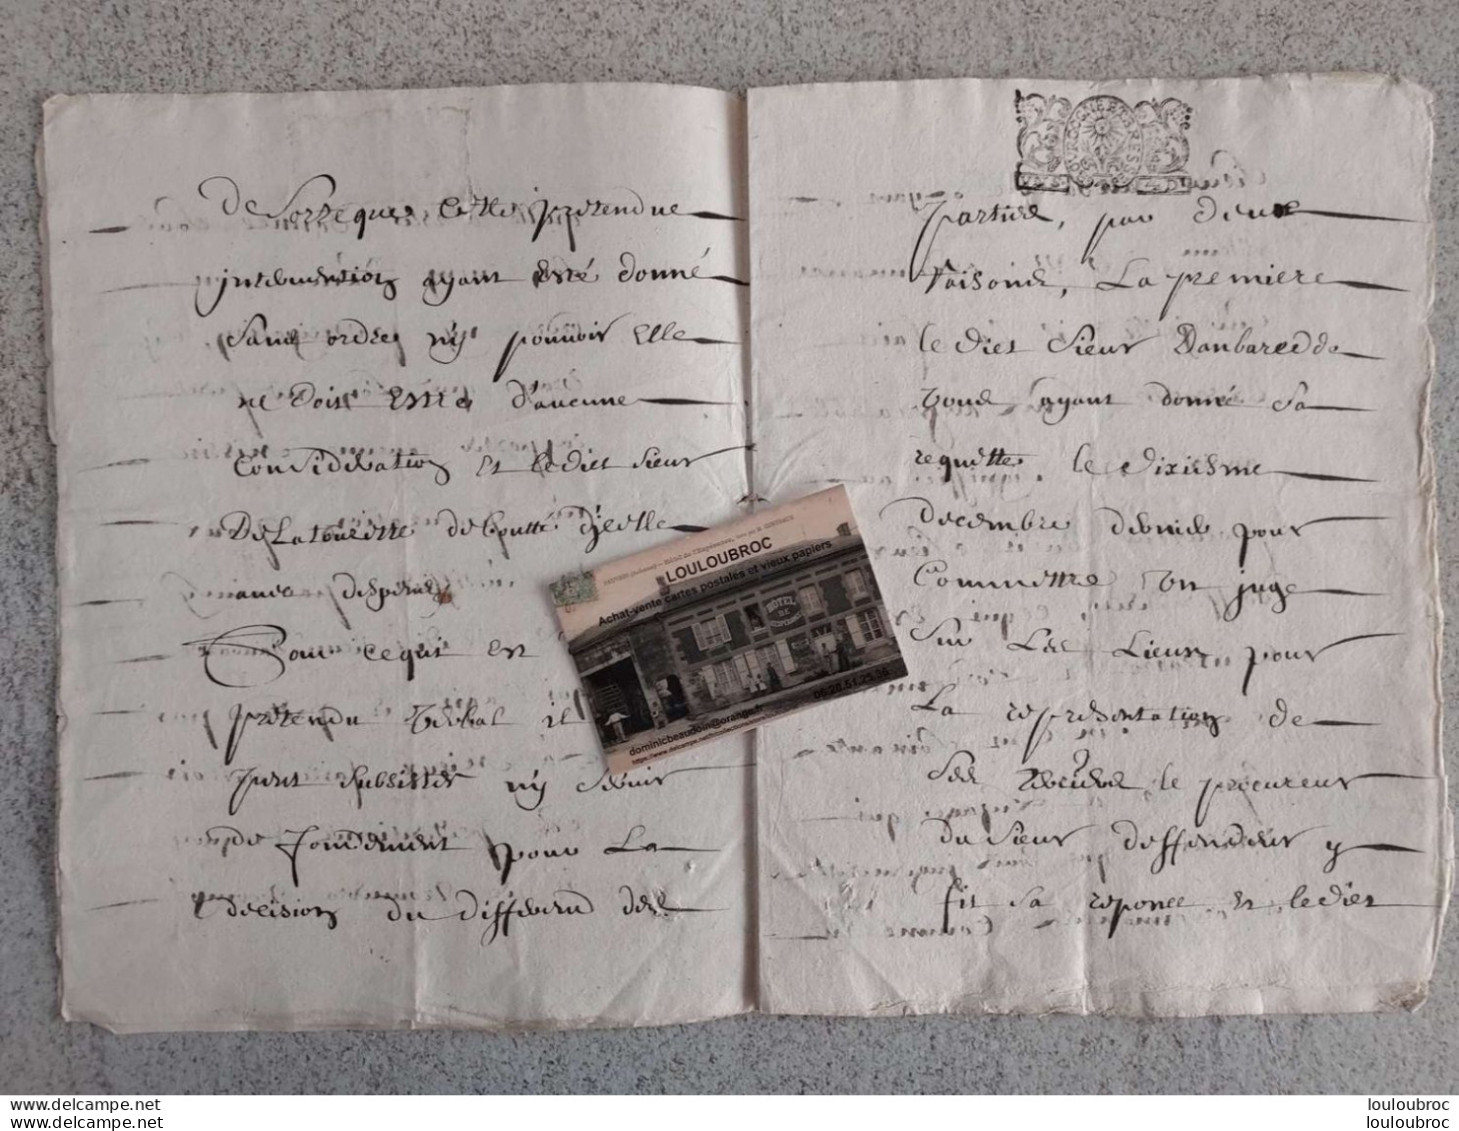 De Sorteque cette pretendue
intervention ayant esté donné
Sans ordre ny pouvoir elle
ne Doit estre d'aucune
Consideration et ledict sieur
De Latouerre deboutté d'jcelle
avec despens
Pour ce qui est
pretendu verbal il
peut subsister ny servir
de fondement pour La
decision du differend des
parties, par deux
raisons, La premiere
le dict Sieur Danbaredde
vous ayant donné sa
requette le dixiesme
decembre dernier pour
Commettre un juge
sur Les Lieux pour
La representation de
ses le procureur
du sieur deffendeur y
fit sa reponce et ledict
LOULOUBROC
Achat-vente cartes postales et vieux papiers
HOTEL
DE
06.28.51.25.56
dominicbeaudoin@orange.fr
louloubroc
louloubroc
www.delcampe.net
www.delcampe.net